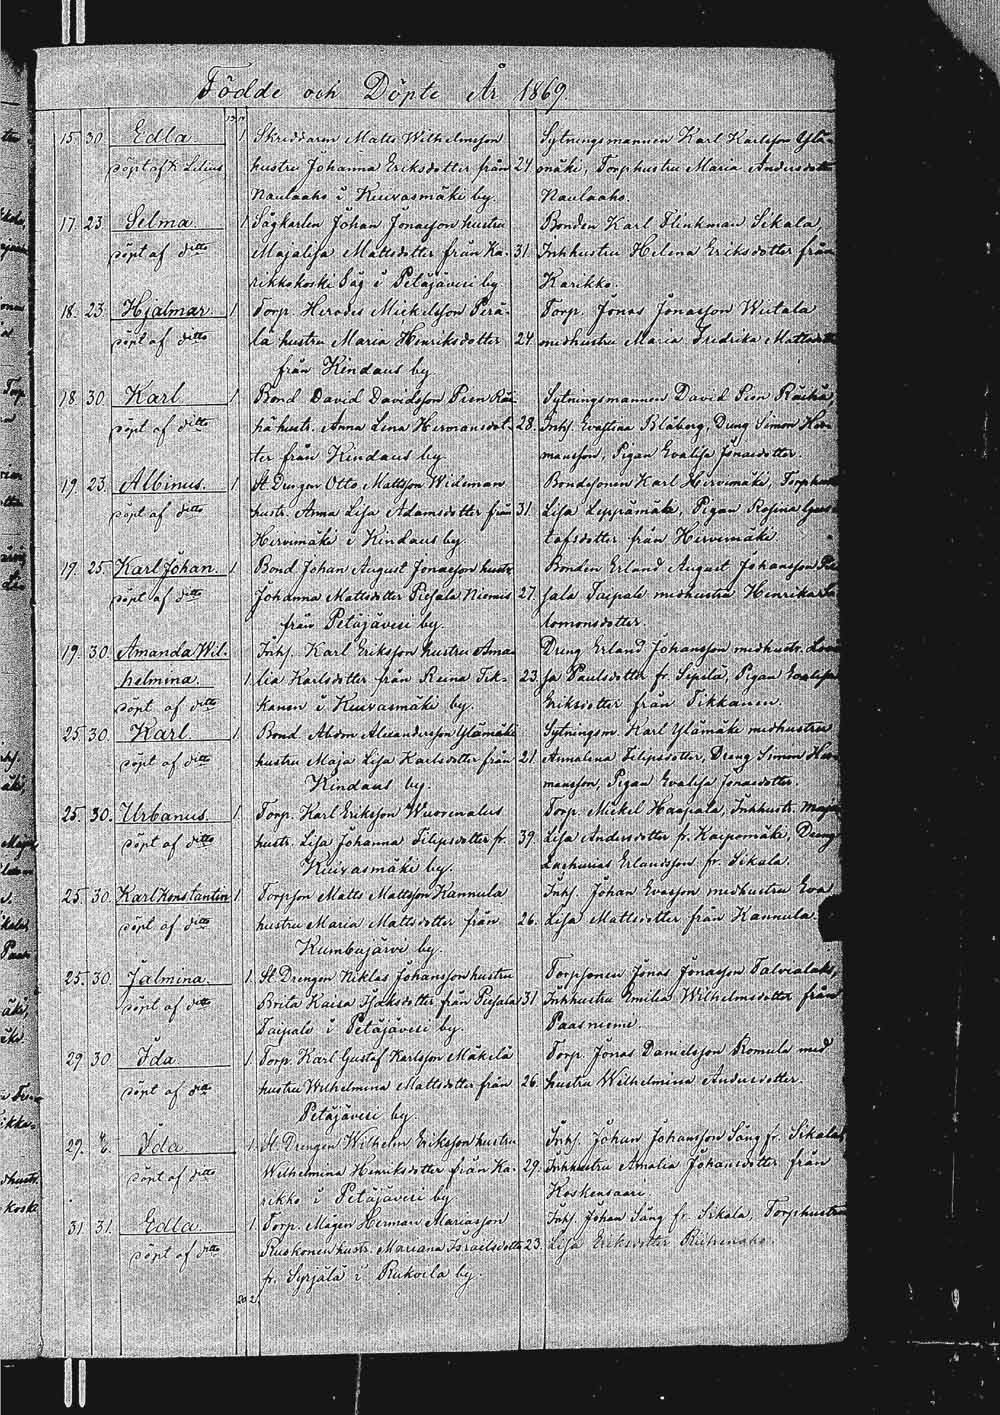 Födde och Döpte År 1869.
15. 30. Edla. 1 Skräddaren Matts Wilhelmsson Sytningsmannen Karl Karlsson Ylä-
döpt af K Lilius hustru Johanna Eriksdotter från 24. mäki, Torphustru Maria Andersdotter
Naulaaho i Kuivasmäki by. Naulaaho.
17. 23. Selma. 1 Sågkarlen Johan Jonasson hustru Bonden Karl Flinkman Sikala,
döpt af ditto Majalisa Mattsdotter från Ka- 31. Inhhustru Helena Eriksdotter från
rikkokoski Såg i Petäjävesi by Karikko.
18. 23. Hjalmar. 1 Torp. Herodes Mickelsson Perä- Torp. Jonas Jonasson Wiitala
döpt af ditto la hustru Maria Henriksdotter 24. medhustru Maria Fredrika
från Kindaus by
18. 30. Karl. 1 Bond David Davidsson Pien Sytningsmannen David Pien
döpt af ditto hustr. Anna Lena Hermansdot- 28. Inhs. Evastina Blåberg, Dräng Simon Her-
ter från Kindaus by. mansson, Pigan Evalisa Jonasdotter.
19. 23. Albinus. 1 St Drengen Otto Mattsson Wideman Bondesonen Karl Hirvimäki,
döpt af ditto hustr. Anna Lisa Adamsdotter från 31. Lisa Leppämäki, Pigan Rosina Gus-
Hirvimäki i Kindaus by. tafsdotter från Hirvimäki
19. 25. Karl Johan. 1 Bond Johan August Jonasson hustr. Bonden Erland August Johansson
döpt af ditto Johanna Mattsdotter Piesala Niemis 27. sala Taipale medhustru Henrika Sa
från Petäjävesi by. lomonsdotter.
19. 30. Amanda Wil- Inhs. Karl Eriksson hustru Ama- Dreng Erland Johansson medhustr. Lovi
helmina. 1 lia Karlsdotter från Reina Tik- 23. sa Paulsdotter fr. Sepilä, Pigan
döpt af ditto kanen i Kuivasmäki by. Eriksdotter från Tikkanen.
25. 30. Karl 1 Bond. Alexandersson Ylämäki Sytningsm. Karl Ylämäki medhustru
döpt af ditto hustru Maja Lisa Karlsdotter från 21. Annalena Filipsdotter, Dreng Simon Her-
Kindaus by. mansson, Pigan Evalisa Jonasdotter.
25. 30. Urbanus. 1 Torp. Karl Eriksson Wuorenalus Torp. Mickel Haapala, Inhhustr. Maja
döpt af ditto hustr. Lisa Johanna Filipsdotter fr. 39. Lisa Andersdotter fr. Kaipomäki, Dreng
Kuivasmäki by. Zacharias Erlandsson fr. Sikala.
25. 30. Karl Konstantin 1. Torpson Matts Mattsson Kannula Inhs. Johan Evasson medhustru Eva
döpt af ditto hustru Maria Mattsdotter från 26. Lisa Mattsdotter från Kannula.
Kumbujärvi by.
25. 30. Jalmina. 1. St Drengen Niklas Johansson hustru Torpsonen Jonas Jonasson Talvialaks,
döpt af ditto Brita Kaisa Isaksdotter från Piesala 31 Inhhustru Emilia Wilhelmsdotter från
Taipale i Petäjävesi by. Paasniemi.
29. 30 Ida 1. Torp. Karl Gustaf Karlsson Mäkelä Torp. Jonas Danielsson Romula med
döpt af ditto hustru Wilhelmina Mattsdotter från 26. hustru Wilhelmina Andersdotter.
Petäjävesi by.
29. Ida. 1. St. Drengen Wilhelm Eriksson hustru Inhs. Johan Johansson Säng fr. Sikala,
döpt af ditto Wilhelmina Henriksdotter från Ka- 29. Inhhustru Amalia Johansdotter från
rikko i Petäjävesi by Koskensaari
31. 31. Edla. 1. Torp. Mågen Herman Mariasson Inhs. Johan Säng fr. Sikala, Torphustru
döpt af ditto Ruskonen hustr. Mariana Israelsdotter 23. Lisa Eriksdotter
fr. Syrjälä i Rukoila by.